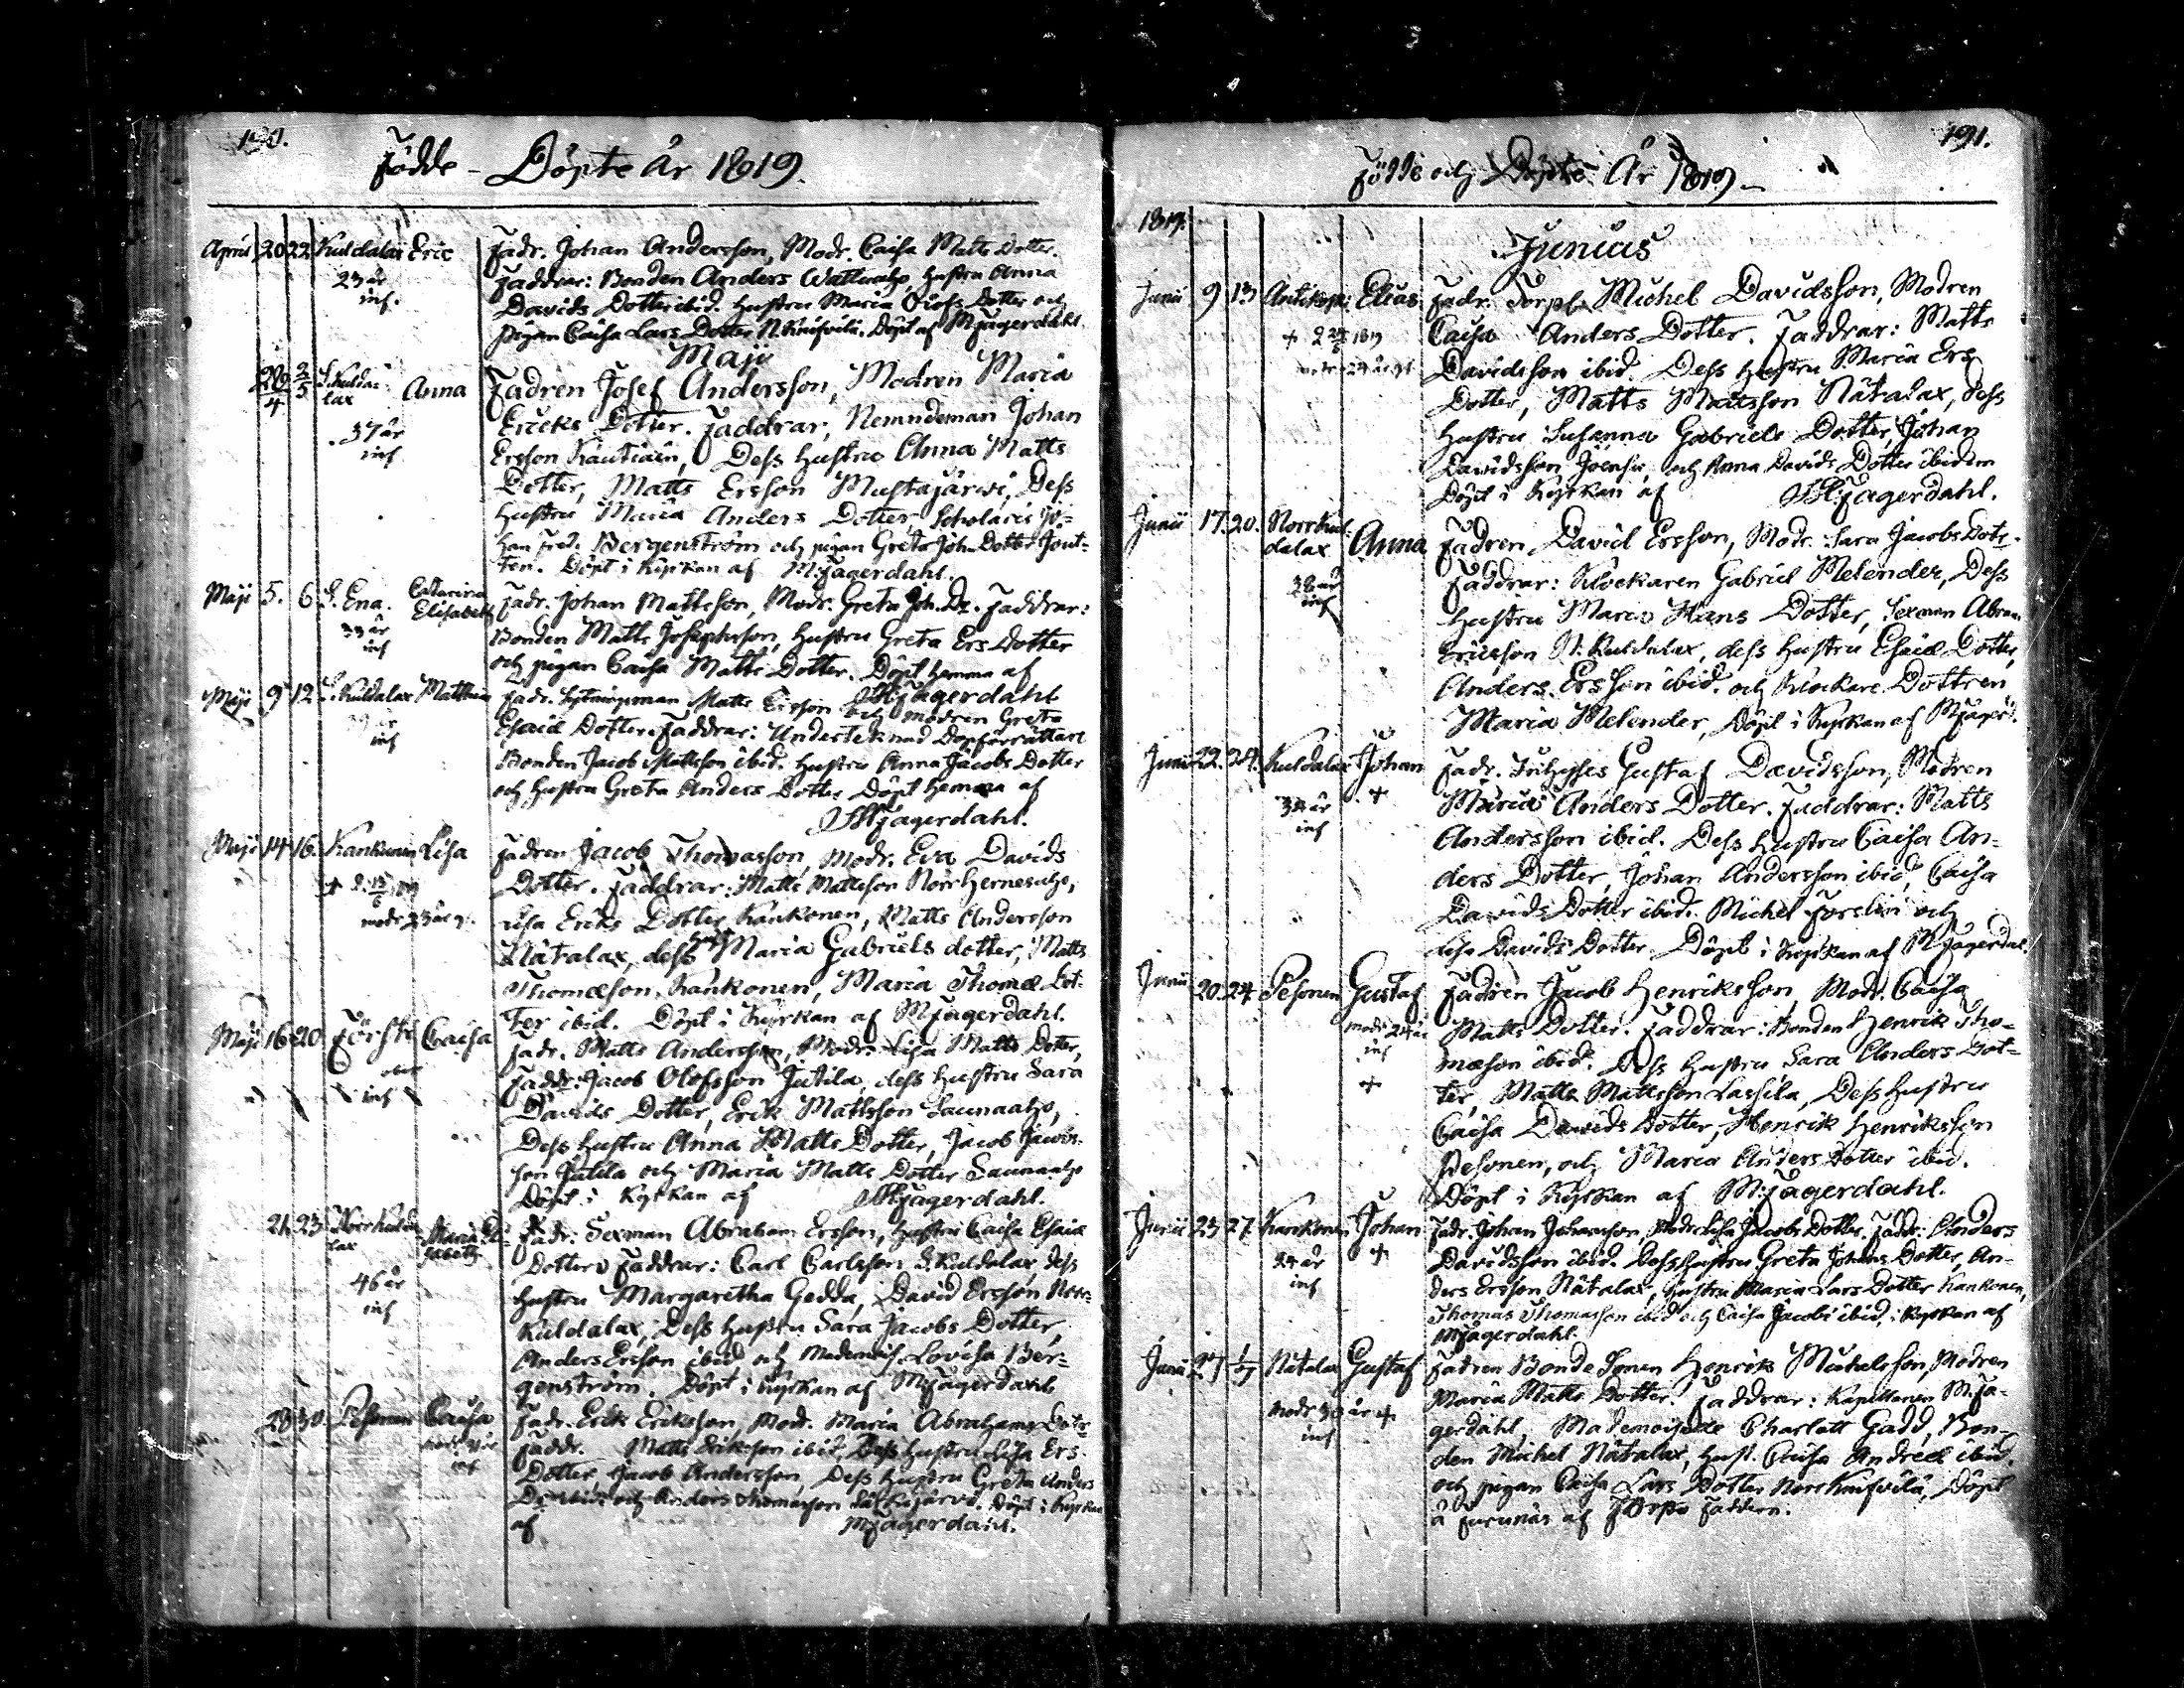 190.
Födde - Döpte år 1819.
April 20 22 Kuldalax Eric Fadr. Johan Andersson, Modr. Caisa Matts Dotter.
23 år Faddrar: Bonden Anders hustru Anna
inf. Davids Dotter ibid. hustru Maria Olofs Dotter och
pigan Caisa Lars Dotter N. Knifvilä. Döpt af M Jagerdahl.
Maji
29/4 2/5 S. Kulda- Anna Fadren Josef Andersson, Modren Maria
lax Ericks Dotter. Faddrar, Nemndeman Johan
37 år Ersson Kautiain, Dess hustru Anna Matts
inf Dotter, Matts Ersson Mustajärwi, Dess
hustru Maria Anders Dotter, Scholaris Jo-
han Fred. Bergenström och pigan Greta Joh. Dotter Jout-
ten. Döpt i Kyrkan af M: Jagerdahl.
Maji 5. 6 S. Ena. Catarina Fadr. Johan Mattsson, Modr. Greta Joh. Dr. Faddrar:
33 år Elisabeth Bonden Matts Josephsson, hustru Greta Ers Dotter
inf och pigan Caisa Matts Dotter. Döpt hemma af
M Jagerdahl
Maji 9 12 S. Kuldalax Mathias Fadr. Matts Ersson och modren Greta
inf Esaiæ Dotter. Faddrar: Underteknad Dopförrättare
Bonden Jacob Mattsson ibid. hustru Anna Jacobs Dotter
och hustru Greta Anders Dotter Döpt hemma af
M Jagerdahl.
Maji 14 16. Kankonen Lisa Fadren Jacob Thomasson, Modr. Eva Davids
Dotter. Faddrar: Matts Mattsson Norrhernesaho,
modr 23 år g. Lisa Eriks Dotter Kankonen, Matts Andersson
Nätalax, dess Maria Gabriels dotter, Matts
Thomæson, Kankonen, Maria Thomæ Dot-
ter ibid. Döpt i Kyrkan af M Jagerdahl.
Maji 16 20. Caisa Fadr. Matts Andersson, Modr. Lisa Matts Dotter,
Faddr: Jacob Olofsson Jutila, dess hustru Sara
inf Davids Dotter, Erik Mattsson Saunaaho,
Dess hustru Anna Matts Dotter, Jacob
son Jutila och Maria Matts Dotter Saunaaho
Döpt i Kyrkan af M Jagerdahl.
21. 23 Norrkulda Maria Eli- Fadr: Sexman Abraham Ersson, hustru Caisa Esaiæ
lax sabeth Dotter. Faddrar: Carl Carlsson S. Kuldalax dess
46 år hustru Margaretha Gedda, David Ersson Norr-
inf Kuldalax, Dess hustru Sara Jacobs Dotter,
Anders Ersson ibid och Lovisa Ber-
genström. Döpt i Kyrkan af M Jagerdahl
28 30. Pesonen Caisa Fadr. Erik Eriksson, Modr. Maria Abrahams Dotr
inf Faddr. Matts Eriksson ibid Dess hustru Lisa Ers
Dotter, Jacob Andersson, Dess hustru Greta Anders
Dr ibid och Anders Thomasson Döpt i Kyrkan
af M Jagerdahl.
191.
Födde och Döpte År 1819 -
1819.
Junius
Junii 9 13 Elias Fadr. Torp. Michel Davidsson, Modren
Caisa Anders Dotter. Faddrar: Matts
Davidsson ibid. Dess hustru Maria Ers
Dotter, Matts Mattsson Nätalax, dess
hustru Susanna Gabriels Dotter, Johan
Davidsson och Anna Davids Dotter ibidem
Döpt i Kyrkan af M Jagerdahl.
Junii 17. 20. Norrkul- Anna Fadren David Ersson, Modr. Sara Jacobs Dotr.
dalax Faddrar: Klockaren Gabriel Melender, Dess
38 år hustru Maria Hans Dotter, Sexman Abram
inf Ericsson N. Kuldalax, dess hustru Esaiæ Dotter,
Anders Ersson ibid. och Klockare Dottren
Maria Melender, Döpt i Kyrkan af M Jager.
Junii 22. 24. Kuldalax Johan Fadr. Gustaf Davidsson, Modren
inf + Maria Anders Dotter. Faddrar: Matts
Andersson ibid. Dess hustru Caisa An-
ders Dotter, Johan Andersson ibid, Caisa
Davids Dotter ibid. Michel Forslin och
Lisa Davids Dotter. Döpt i Kyrkan af M Jagerdal.
Junii 20. 24. Pesonen Gustaf Fadren Jacob Henriksson, Modr. Caisa
modr 24 år Matts Dotter. Faddrar: Bonden Henrik Tho-
inf mæson ibid. Dess hustru Sara Anders Dot-
+ ter, Matts Mattsson Lassila, Dess hustru
Caisa Davids Dotter, Henrik Henriksson
Pesonen, och Maria Anders Dotter ibid.
Döpt i Kyrkan af M: Jagerdahl.
Junii 23 27. Kankonen Johan Fadr. Johan Johansson, Modr. Lisa Jacobs Dotter. Faddr: Anders
+ Davidsson ibid. Dess hustru Greta Johans Dotter, An-
inf ders Ersson Nätalax, hustru Maria Lars Dotter Kankonen,
Thomas Thomasson ibid och Caisa Jacobs ibid. i Kyrkan af
M Jagerdahl.
Junii 27 1/7 Nätalax Gustaf Fadren Bonde Sonen Henrik Michelsson, Modren
modr 30 år + Maria Matts Dotter. Faddrar: Kapellanen M: Ja-
inf gerdahl, Mademoiselle Charlott Gadd, Bon-
den Michel Nätalax, hust. Caisa Andreæ ibid.
och pigan Caisa Lars Dotter Norr Knifvilä, Döpt
å Furunäs af Första Faddern.